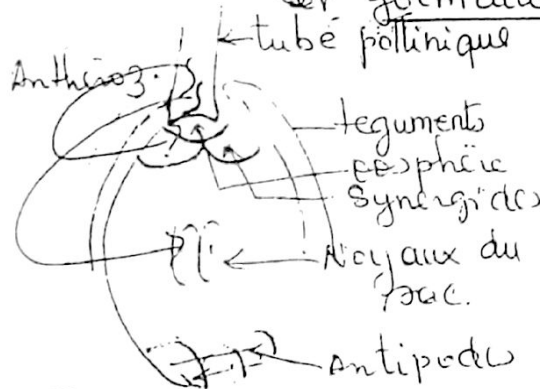 tube pollinique
Anthéroz.
teguments
oosphère
Synergides
Noyaux du
sac.
Antipodes